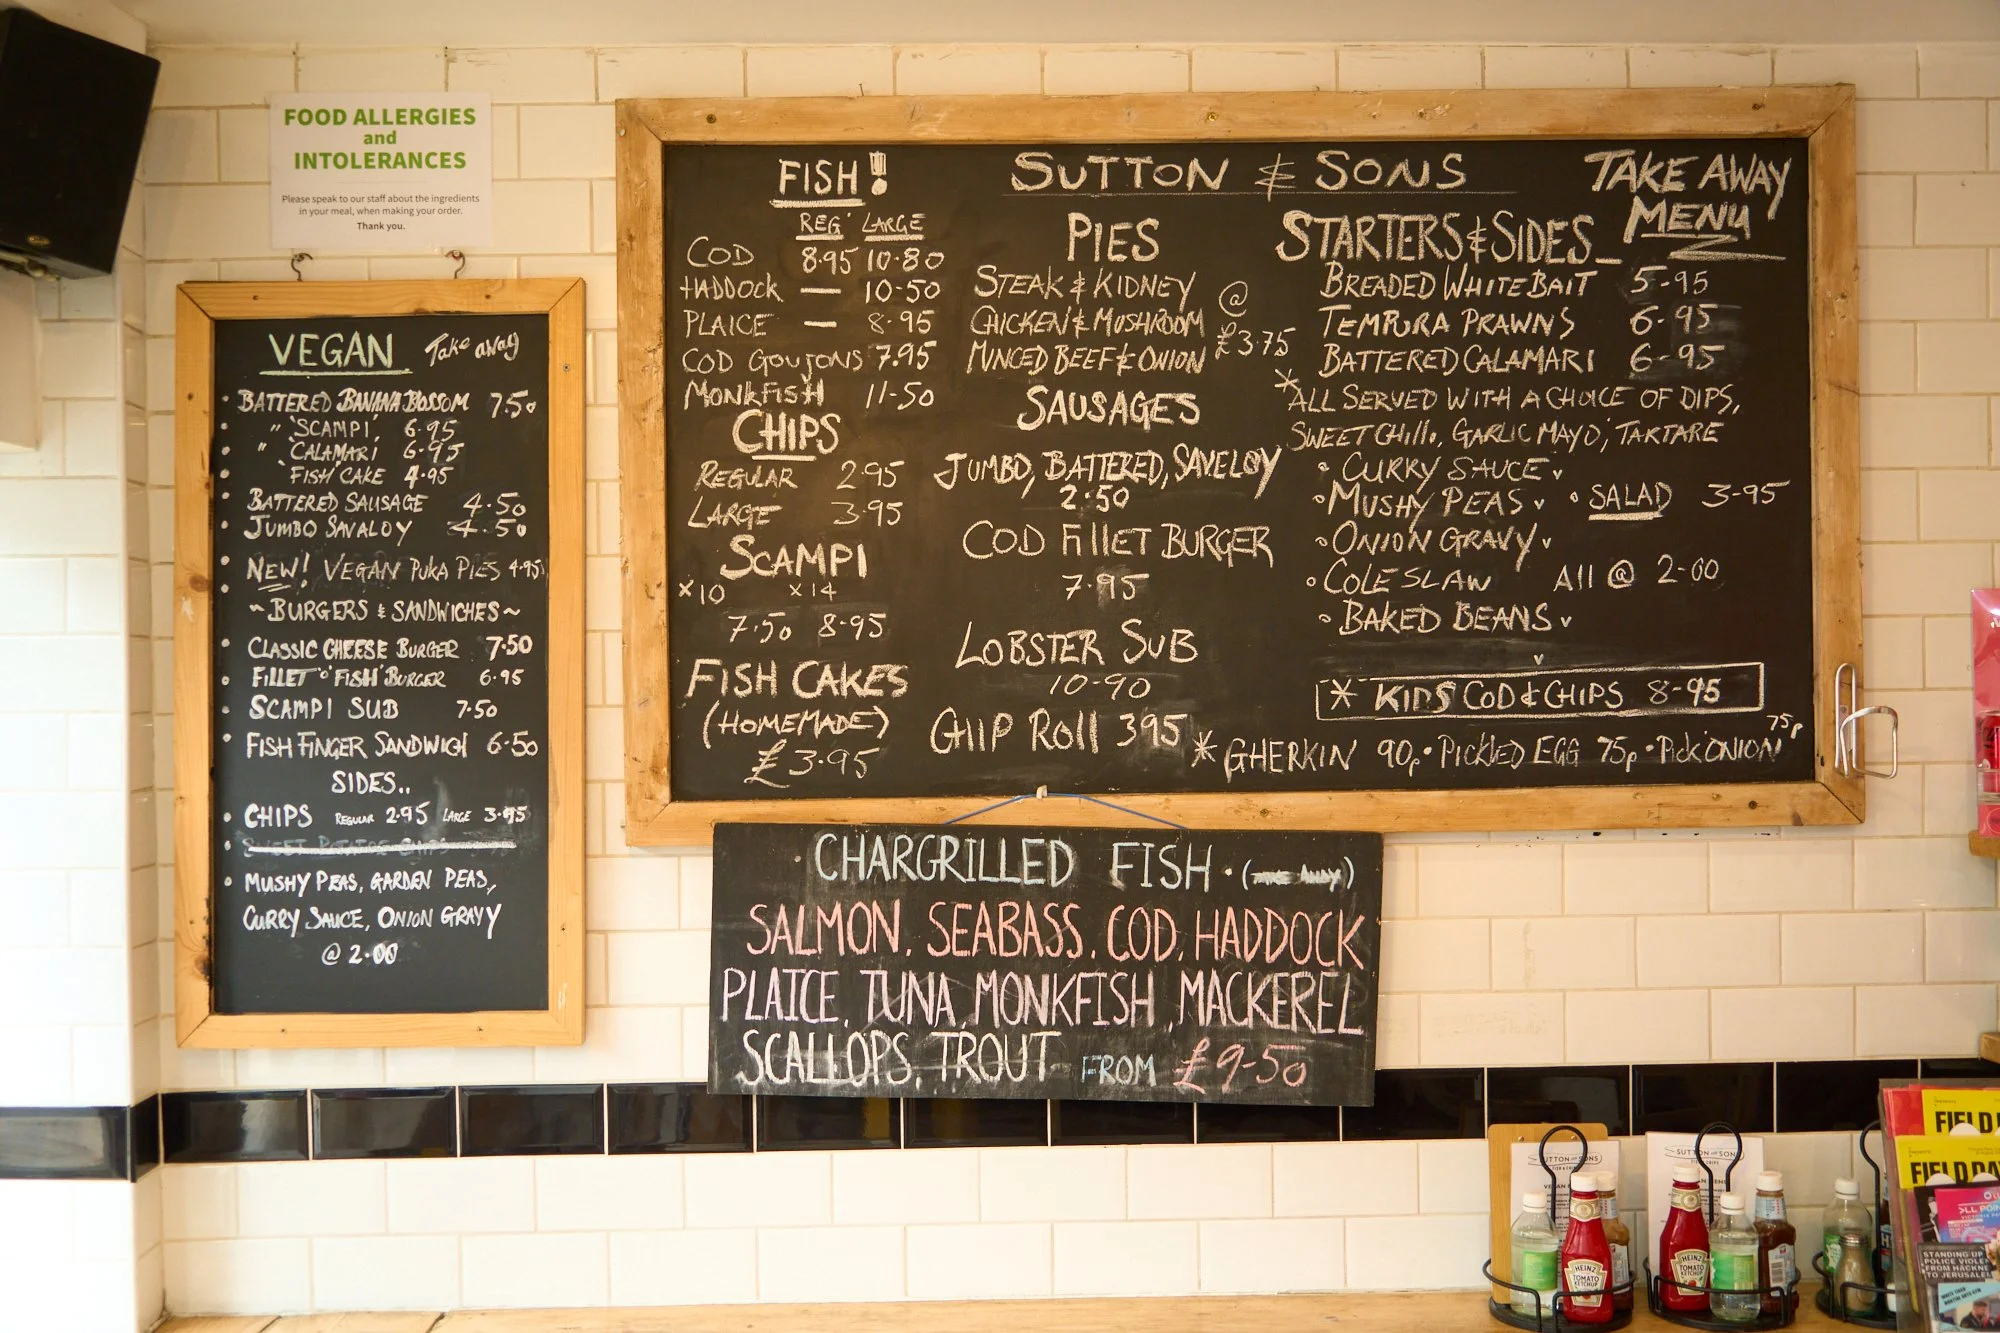 FOOD ALLERGIES
and
INTOLERANCES
Please speak to our staff about the ingredients
in your meal, when making your order.
Thank you.
VEGAN Take away
BATTERED BANANA BLOSSOM 7.50
" 'SCAMPI' 6.95
" 'CALAMARI 6.95
'FISH' CAKE 4.95
BATTERED SAUSAGE 4.50
JUMBO SAVALOY 4.50
NEW! VEGAN PUKA PIES 4.95
~BURGERS & SANDWICHES~
CLASSIC CHEESE BURGER 7.50
FILLET 'O' 'FISH' BURGER 6.95
SCAMPI SUB 7.50
FISH FINGER SANDWICH 6.50
SIDES..
CHIPS REGULAR 2.95 LARGE 3.95
SWEET POTATOE CHIPS
MUSHY PEAS, GARDEN PEAS,
CURRY SAUCE, ONION GRAVY
@ 2.00
SUTTON & SONS
TAKE AWAY
MENU
FISH!
REG' LARGE
COD 8.95 10.80
HADDOCK — 10-50
PLAICE — 8.95
COD GOUJONS 7.95
MONKFISH 11-50
CHIPS
REGULAR 2.95
LARGE 3.95
SCAMPI
x10 x14
7.50 8-95
FISH CAKES
(HOMEMADE)
£3.95
PIES
STEAK & KIDNEY
CHICKEN & MUSHROOM
MINCED BEEF & ONION
@
£3.75
SAUSAGES
JUMBO, BATTERED, SAVELOY
2.50
COD FILLET BURGER
7.95
LOBSTER SUB
10-90
CHIP ROLL 395
STARTERS & SIDES
BREADED WHITEBAIT 5-95
TEMPURA PRAWNS 6-95
BATTERED CALAMARI 6-95
*ALL SERVED WITH A CHOICE OF DIPS,
SWEET CHILLI, GARLIC MAYO, TARTARE
• CURRY SAUCE v
• MUSHY PEAS v • SALAD 3-95
• ONION GRAVY v
• COLESLAW All @ 2-00
• BAKED BEANS v
v
* KIDS COD & CHIPS 8-95
* GHERKIN 90p • PICKLED EGG 75p • PICK'ONION 75p
CHARGRILLED FISH • (TAKE AWAY)
SALMON, SEABASS, COD, HADDOCK
PLAICE, TUNA, MONKFISH, MACKEREL
SCALLOPS, TROUT FROM £9-50
SUTTON AND SONS
SUTTON AND SONS
HEINZ
TOMATO
KETCHUP
HEINZ
TOMATO
KETCHUP
FIELD D
FIELD DAY
STANDING UP
POLICE VIOLEN
FROM HACKNE
TO JERUSALE